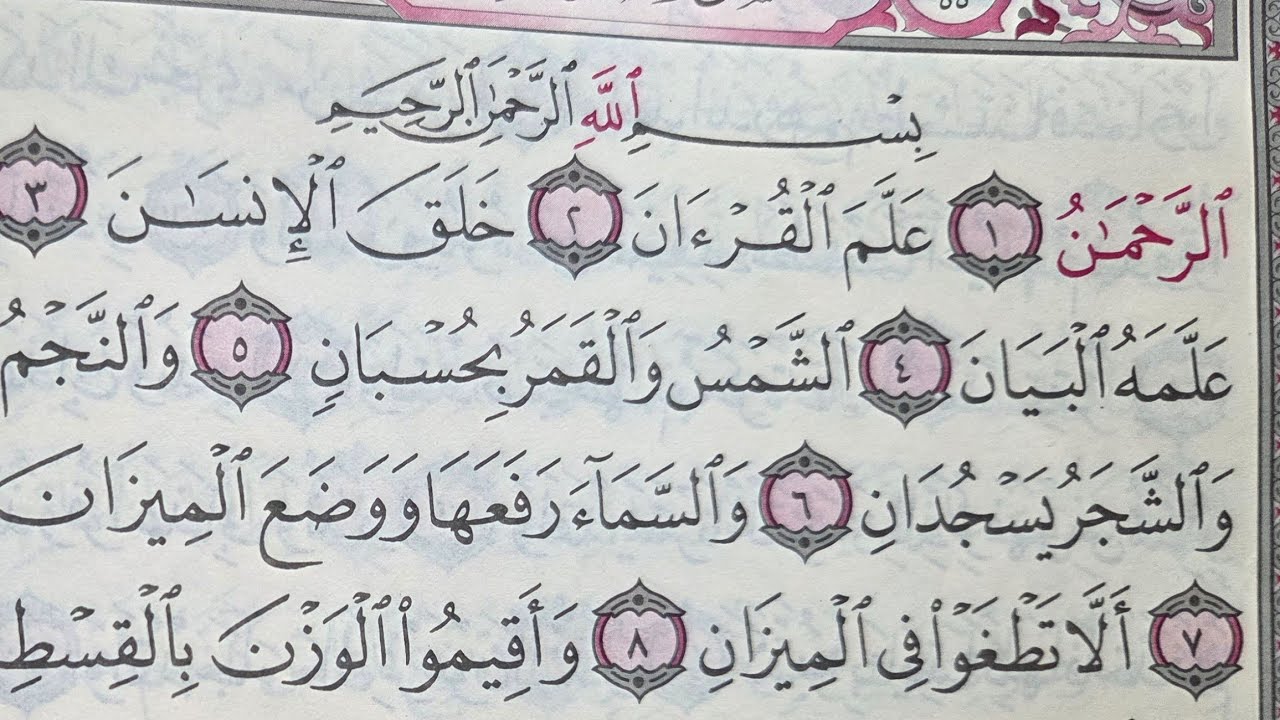 ٥٥
بِسْمِ ٱللَّهِ ٱلرَّحْمَٰنِ ٱلرَّحِيمِ
ٱلرَّحْمَٰنُ ١ عَلَّمَ ٱلْقُرْءَانَ ٢ خَلَقَ ٱلْإِنسَٰنَ ٣
عَلَّمَهُ ٱلْبَيَانَ ٤ ٱلشَّمْسُ وَٱلْقَمَرُ بِحُسْبَانٍ ٥ وَٱلنَّجْمُ
وَٱلشَّجَرُ يَسْجُدَانِ ٦ وَٱلسَّمَآءَ رَفَعَهَا وَوَضَعَ ٱلْمِيزَانَ
٧ أَلَّا تَطْغَوْا۟ فِى ٱلْمِيزَانِ ٨ وَأَقِيمُوا۟ ٱلْوَزْنَ بِٱلْقِسْطِ